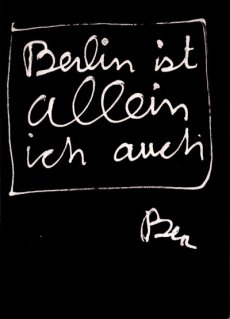 Berlin ist
allein
ich auch
Ben